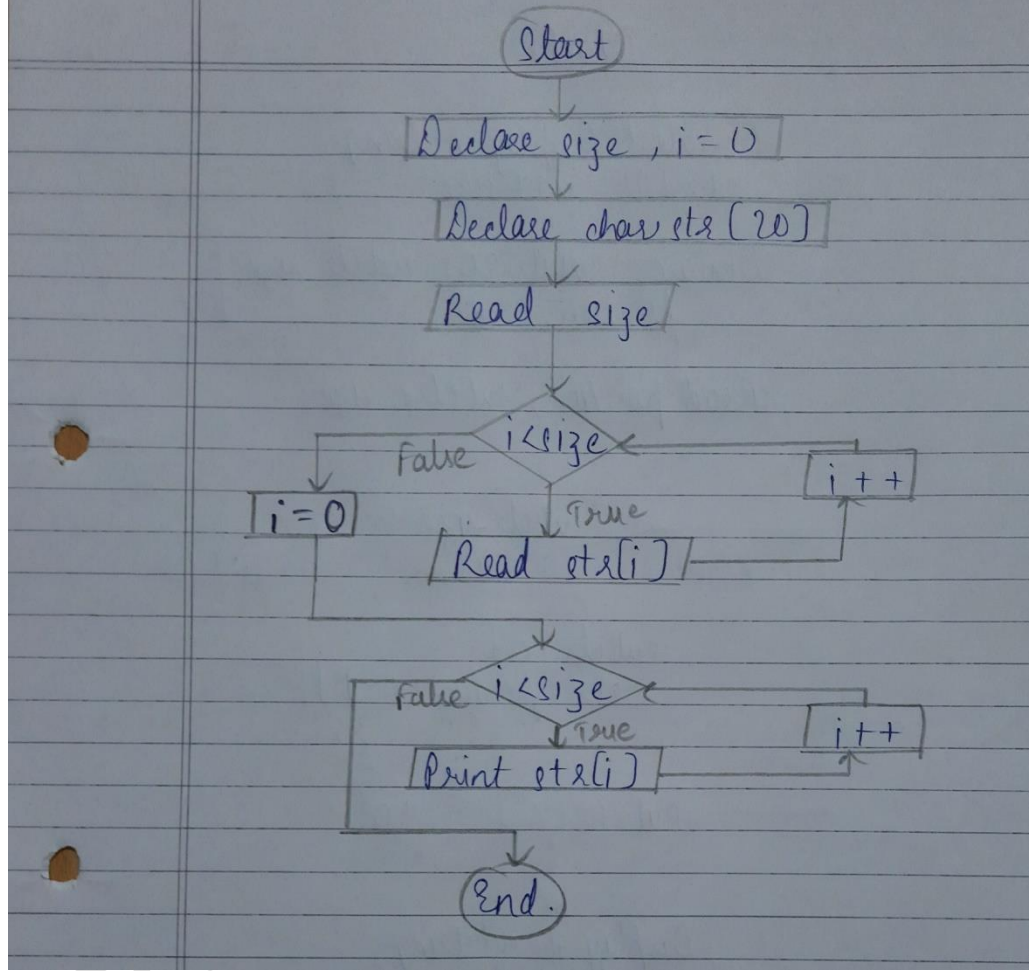 Start
Declare size, i = 0
Declare char str[20]
Read size
i<size
False
i++
i=0
True
Read str[i]
i<size
False
True
i++
Print str[i]
End.